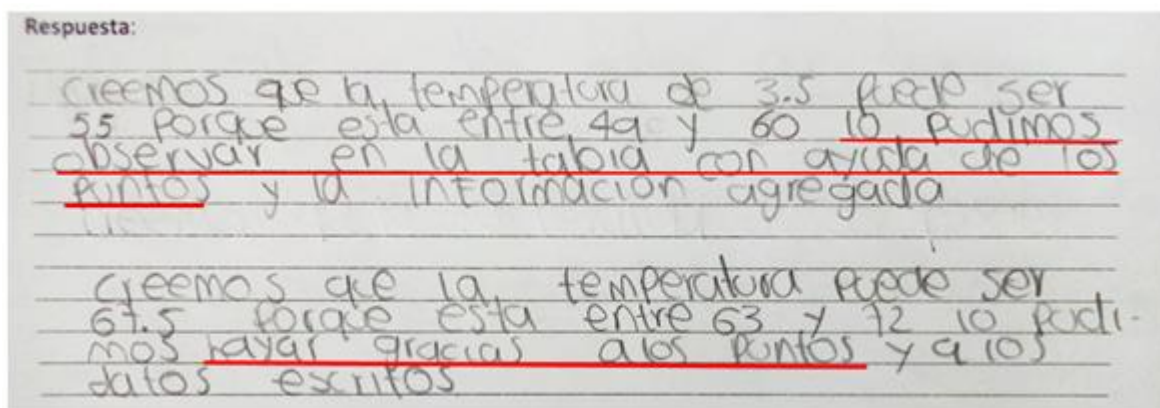 Respuesta:
creemos que la temperatura de 3.5 puede ser
55 porque esta entre 49 y 60 lo pudimos
observar en la tabla con ayuda de los
puntos y la información agregada
creemos que la temperatura puede ser
67.5 porque esta entre 63 y 72 lo pudi-
mos rayar gracias a los puntos y a los
datos escritos